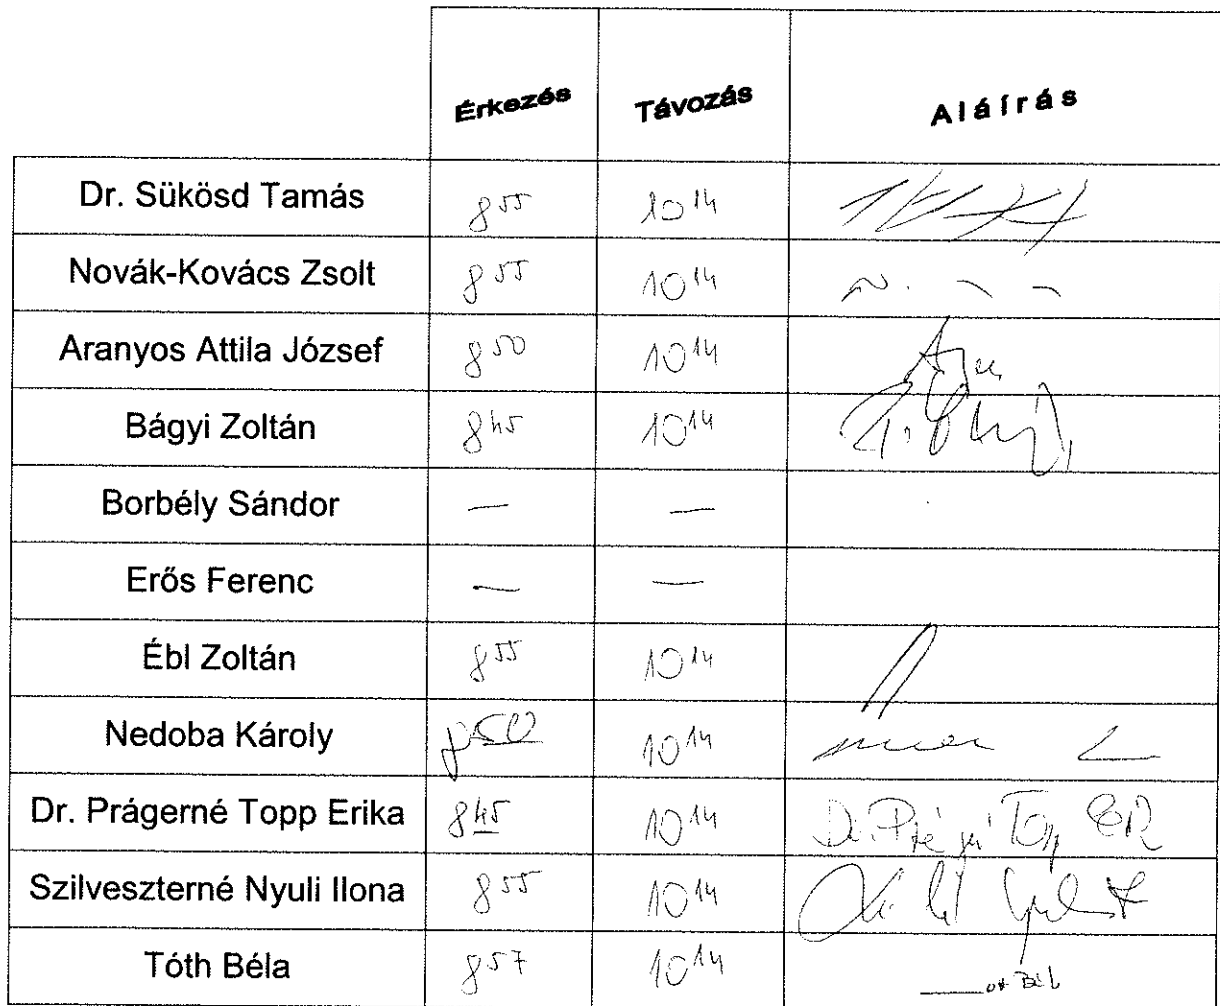 Érkezés Távozás Aláírás
Dr. Sükösd Tamás 8 55 10 14
Novák-Kovács Zsolt 8 55 10 14
Aranyos Attila József 8 50 10 14
Bágyi Zoltán 8 45 10 14
Borbély Sándor — —
Erős Ferenc — —
Ébl Zoltán 8 55 10 14
Nedoba Károly 8 50 10 14
Dr. Prágerné Topp Erika 8 45 10 14
Szilveszterné Nyuli Ilona 8 55 10 14
Tóth Béla 8 57 10 14